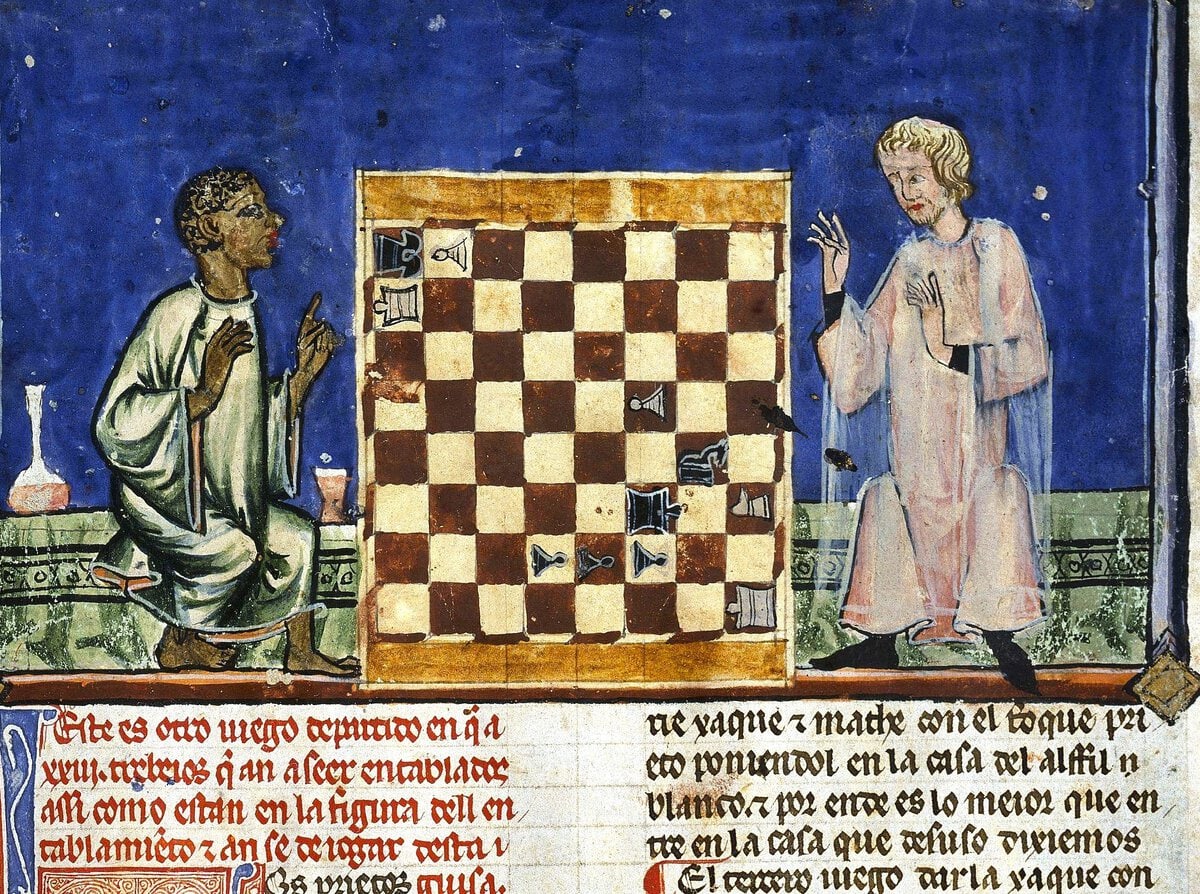 Este es otro iuego departido en q̃ a
xxiii. trebeios q̃ an a seer entablados
assi como estan en la figura dell en
tablamiẽto ⁊ an se de iogar desta i
Os prietos guisa.
rie xaque ⁊ mathe con el roque pri
eto poniendol en la casa del alffil
blanco. ⁊ por ende es lo meior que en
tre en la casa que desuso dixiemos
El tercero iuego darla xaque con